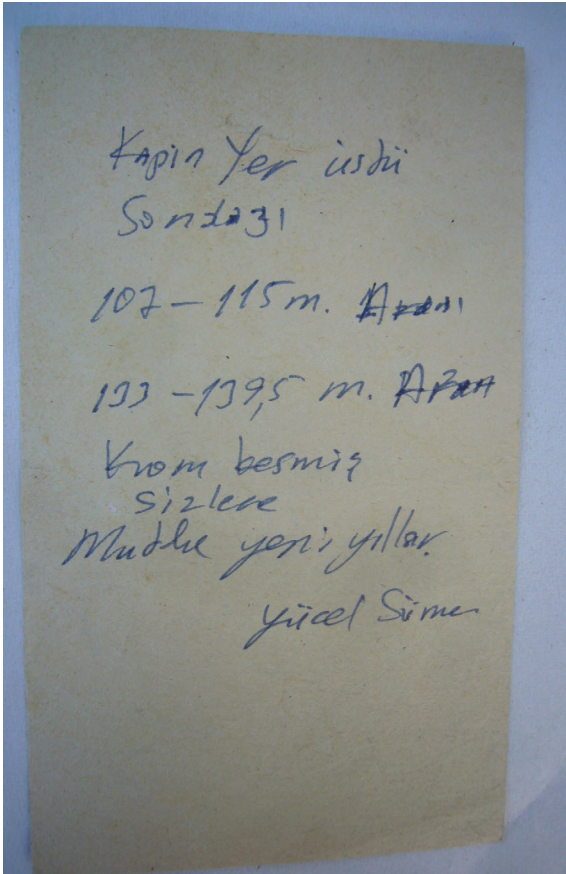 Kapin Yer üstü
Sondazı
107 – 115 m. Arası
133 – 139,5 m. Arası
Krom kesmiş
sizlere
Mutlu yeni yıllar.
Yücel Sümer